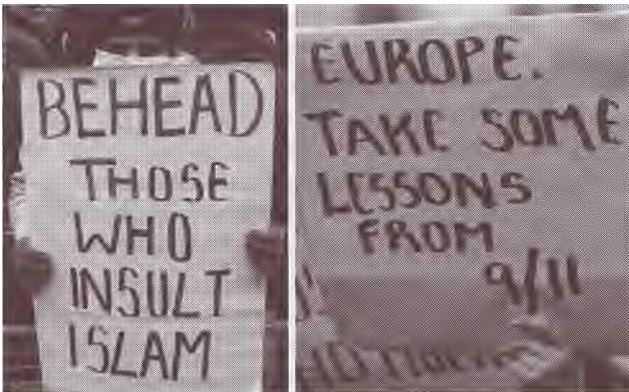 BEHEAD
THOSE
WHO
INSULT
ISLAM
EUROPE.
TAKE SOME
LESSONS
FROM
9/11